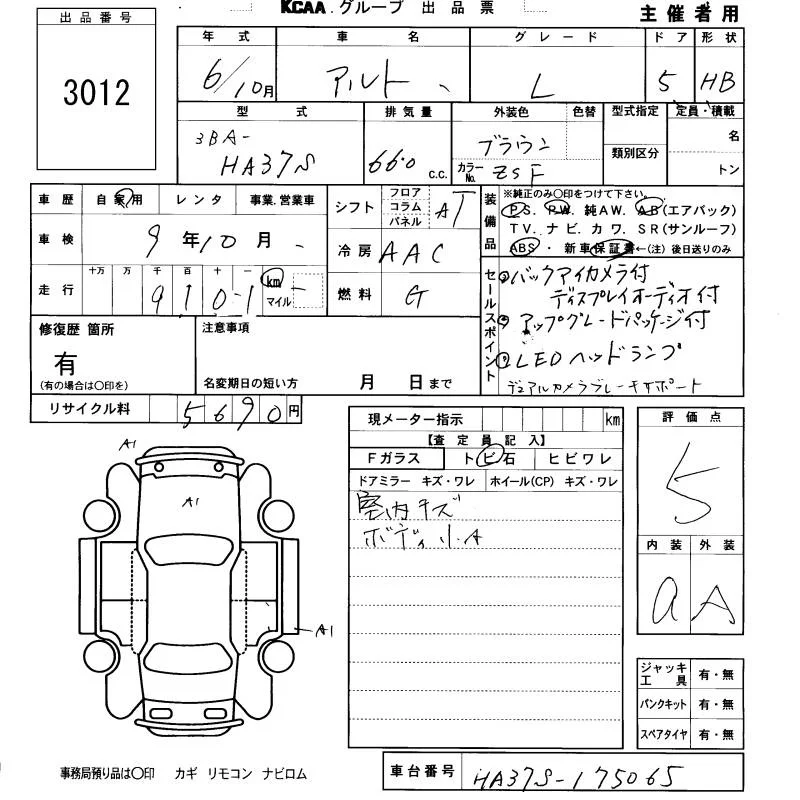 KCAA グループ 出品票
主催者用
出品番号
3012
年式 車名 グレード ドア 形状
6/10月 アルト L 5 HB
型式 排気量 外装色 色替 型式指定 定員・積載
3BA-
HA37S
660 C.C.
ブラウン
カラーNo. ZSF
類別区分
名
トン
車歴 自家用 レンタ 事業.営業車
車検 9年10月
走行 十万 万 千 百 十 一
9 1 0 1 km マイル
シフト フロア コラム パネル AT
冷房 AAC
燃料 G
装備品
※純正のみ〇印をつけて下さい。
P.S. P.W. 純AW. AB(エアバック)
TV. ナビ. カワ. SR(サンルーフ)
ABS・新車保証書←(注)後日送りのみ
セールスポイント
バックアイカメラ付
ディスプレイオーディオ付
アップグレードパッケージ付
LEDヘッドランプ
デュアルカメラブレーキサポート
修復歴 箇所
有
(有の場合は〇印を)
注意事項
名変期日の短い方 月 日まで
リサイクル料 5690円
現メーター指示 km
【査定員記入】
Fガラス トビ石 ヒビワレ
ドアミラー キズ・ワレ ホイール(CP) キズ・ワレ
室内キズ
ボディ小A
評価点
5
内装 外装
a A
A1
A1
A1
ジャッキ工具 有・無
パンクキット 有・無
スペアタイヤ 有・無
事務局預り品は〇印 カギ リモコン ナビロム
車台番号 HA37S-175065